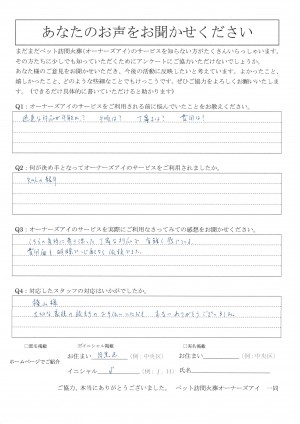 あなたのお声をお聞かせください
まだまだペット訪問火葬(オーナーズアイ)のサービスを知らない方がたくさんいらっしゃいます。
その方たちに少しでも知っていただくためにアンケートにご協力いただけないでしょうか。
あなた様のご意見をお聞かせいただき、今後の活動に反映したいと考えています。よかったこと、
嬉しかったこと、どのような些細なことでもけっこうです。ぜひご協力をよろしくお願いいたしま
す。(できるだけ具体的に書いていただけると助かります)
Q1:オーナーズアイのサービスをご利用される前に悩んでいたことをお教えください。
迅速な対応が可能か? 丁寧さは? 費用は?
Q2:何が決め手となってオーナーズアイのサービスをご利用されましたか。
の紹介
Q3:オーナーズアイのサービスを実際にご利用なさってみての感想をお聞かせください。
こちらの気持に寄り添った丁寧な対応で有難く感じた。
費用面も明確で心配なく依頼できた。
Q4:対応したスタッフの対応はいかがでしたか。
横山様
大切な最後の旅立ちのお手伝いいただき、まことにありがとうございました。
□匿名掲載 ☑イニシャル掲載 □実名掲載
ホームページでご紹介
お住まい 目黒区 (例:中央区) お住まい (例:中央区)
イニシャル (例:T.H) お名前
ご協力、本当にありがとうございました。 ペット訪問火葬オーナーズアイ 一同